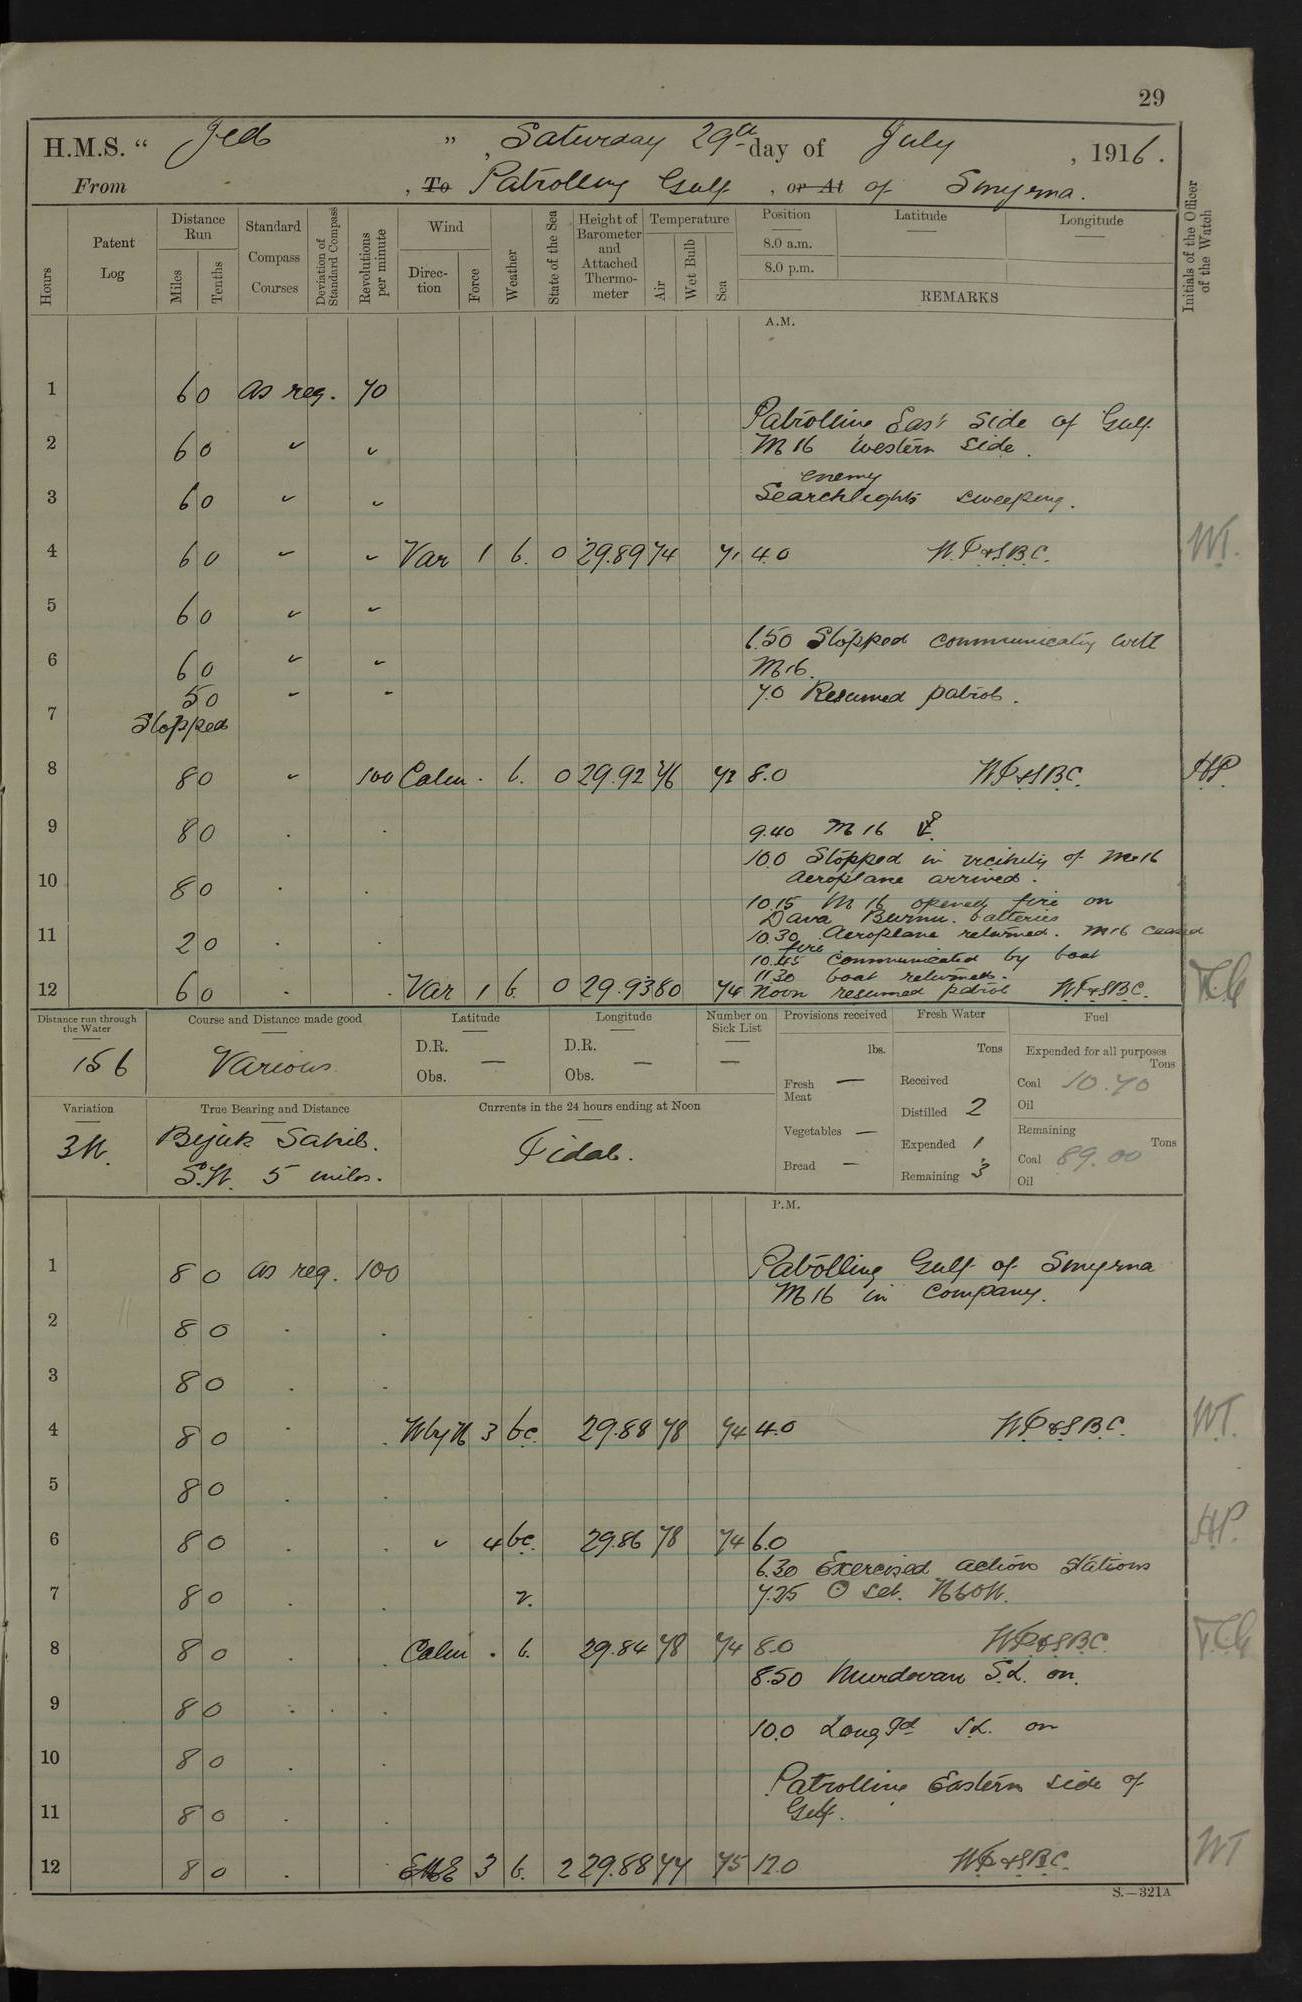 29
H.M.S. " Jed " , Saturday 29th day of July , 1916.
From , To Patrolling Gulf , or At of Smyrna.
Hours
Patent Log
Distance Run
Miles
Tenths
Standard Compass Courses
Deviation of Standard Compass
Revolutions per minute
Wind
Direction
Force
Weather
State of the Sea
Height of Barometer and Attached Thermometer
Temperature
Air
Wet Bulb
Sea
Position
8.0 a.m.
8.0 p.m.
Latitude
Longitude
REMARKS
Initials of the Officer of the Watch
A.M.
1 6 0 as req. 70
Patrolling East side of Gulf
2 6 0 " " M 16 western side.
enemy
3 6 0 " " Searchlights sweeping.
4 6 0 " " Var 1 b. 0 29.89 74 71 4.0 W.P.&S.B.C. WT.
5 6 0 " "
6.50 Stopped communicating with
6 6 0 " " M16.
5 0 " " 7.0 Resumed patrol.
7 Stopped
8 8 0 " 100 Calm . b. 0 29.92 76 72 8.0 W.P.&S.B.C. HP.
9 8 0 . . 9.40 M 16 ⚓.
10.0 Stopped in vicinity of M16
10 8 0 . . Aeroplane arrived.
10.15 M 16 opened fire on
Dava Burnu. batteries
11 2 0 . . 10.30 Aeroplane returned. M16 ceased
fire
10.45 communicated by boat
11.30 boat returned.
12 6 0 . . Var 1 b. 0 29.93 80 74 Noon resumed patrol W.P.&S.B.C.
Distance run through the Water
156
Course and Distance made good
Various
Latitude
D.R. —
Obs.
Longitude
D.R. —
Obs.
Number on Sick List
—
Provisions received
lbs.
Fresh Meat —
Vegetables —
Bread —
Fresh Water
Tons
Received
Distilled 2
Expended 1
Remaining 3
Fuel
Expended for all purposes
Tons
Coal 10.70
Oil
Remaining
Tons
Coal 89.00
Oil
Variation
3W.
True Bearing and Distance
Bijuk Sahib.
S.W. 5 miles.
Currents in the 24 hours ending at Noon
Tidal.
P.M.
1 8 0 as req. 100 Patrolling Gulf of Smyrna
M 16 in company.
2 8 0 . .
3 8 0 . .
4 8 0 . . WbyN 3 bc. 29.88 78 74 4.0 W.P.&S.B.C. WT.
5 8 0 . .
6 8 0 . . " 4 bc. 29.86 78 74 6.0 HP.
6.30 Exercised action stations
7 8 0 . . v. 7.25 ⊙ set. N60W.
8 8 0 . . Calm . b. 29.84 78 74 8.0 W.P.&S.B.C.
8.50 Murdovan S.L. on.
9 8 0 . . .
10.0 Long Id S.L. on
10 8 0 . .
Patrolling Eastern side of
11 8 0 . . Gulf.
12 8 0 . 3 b. 2 29.88 77 75 12.0 W.P.&S.B.C. WT
S.—321A